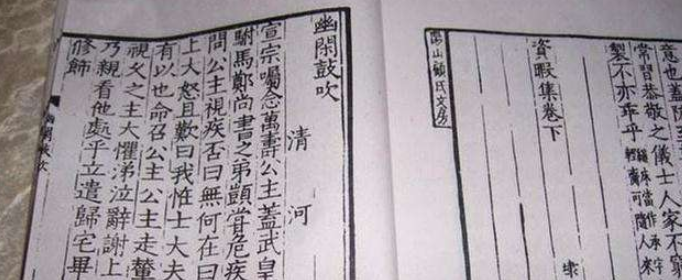 意也蓋防至
常習恭敬之儀士人家不
製不亦乖乎
資暇集卷下
陽山顧氏文房
幽閑鼓吹
清河
宣宗囑念萬壽公主蓋武皇
駙馬鄭尚書之弟顗嘗危疾
問公主視疾否曰無何在曰
上大怒且歎曰我怪士大夫
有以也命召公主公主走輦
視久之主大懼涕泣辭謝上
乃親看他處乎立遣歸宅畢
修飾